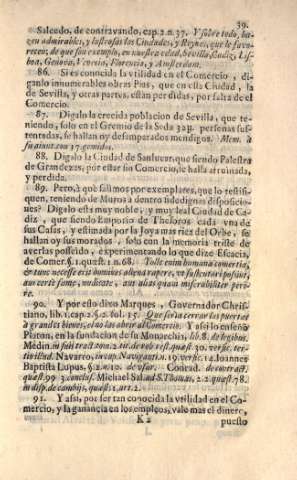 39.
Salcedo, de contravando, cap. 2. n. 37. Y sobre todo, ha-
zen admirables, y lustrosas las Ciudades, y Reynos, que le favo-
recen; de que son exemplo, en nuestra edad, Sevilla, Cadiz, Lis-
boa, Genova, Venecia, Florencia, y Amsterdam.
86. Si es conocida la vtilidad en el Comercio, di-
ganlo innumerables obras Pias, que en esta Ciudad, la
de Sevilla, y otras partes, estàn perdidas, por falta de el
Comercio.
87. Digalo la crecida poblacion de Sevilla, que te-
niendo, solo en el Gremio de la Seda personas sus-
tentadas, se hallan oy desamparados mendigos. Mem. à
su aiunt. con 17. gemidos.
88. Digalo la Ciudad de Sanlucar, que siendo Palestra
de Grandezas, por estar sin Comercio, se halla arruinada,
y perdida.
89. Pero, à què salimos por exemplares, que lo testifi-
quen, teniendo de Muros à dentro tan dignas disposicio-
nes? Digalo esta muy noble, y muy leal Ciudad de Ca-
diz, que siendo Emporio de Thesoros cada vna de
sus Casas, y estimada por la Joya mas rica del Orbe, se
hallan oy sus morados, solo con la memoria triste de
averlas posseido, experimentando lo que dize Escacia,
de Comer. §. 1. quæst. 1. n. 68. Tolle enim humana comertia,
& tunc necesse erit dominos aliena rapere, vt suscitari possint,
aut certè fame, nuditate, aut alias quam miserabiliter peri-
re.
90. Y por esto dixo Marques, Governador Chris-
tiano, lib. 1. cap. 2. §. 2. fol. 15. Que serìa cerrar las puertas
à grandes bienes, el no las abrir al Comercio. Y assi lo enseñò
Platon, en la fundacion de su Monarchia, lib. 8. de legibus.
Medin. in sui tract. tom. 2. tit. de reb. rest. quæst. 30. verse. ter-
tio. Navarro, in cap. Navigant. n. 19. verse. 14. Ioannes
Baptista Lupus, §. 2. n. 10. de vsur. Conrad. de contract.
quæst. 99. 3. conclus. Michael Sal. ad S. Thomas, 2. 2. quæst. 78.
in disp. de cambijs, quæst. 1. art. 2.
91. Y assi, por ser tan conocida la vtilidad en el Co-
mercio, y la ganancia en los empleos, vale mas el dinero,
K 2 puesto